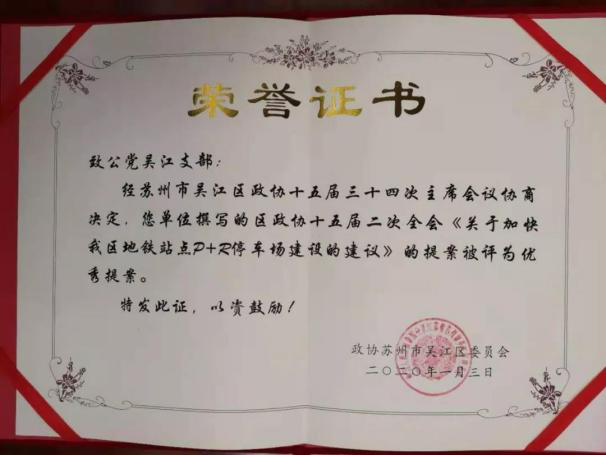 荣誉证书
致公党吴江支部：
经苏州市吴江区政协十五届三十四次主席会议协商
决定，您单位撰写的区政协十五届二次全会《关于加快
我区地铁站点P+R停车场建设的建议》的提案被评为优
秀提案。
特发此证，以资鼓励！
政协苏州市吴江区委员会
二〇二〇年一月三日